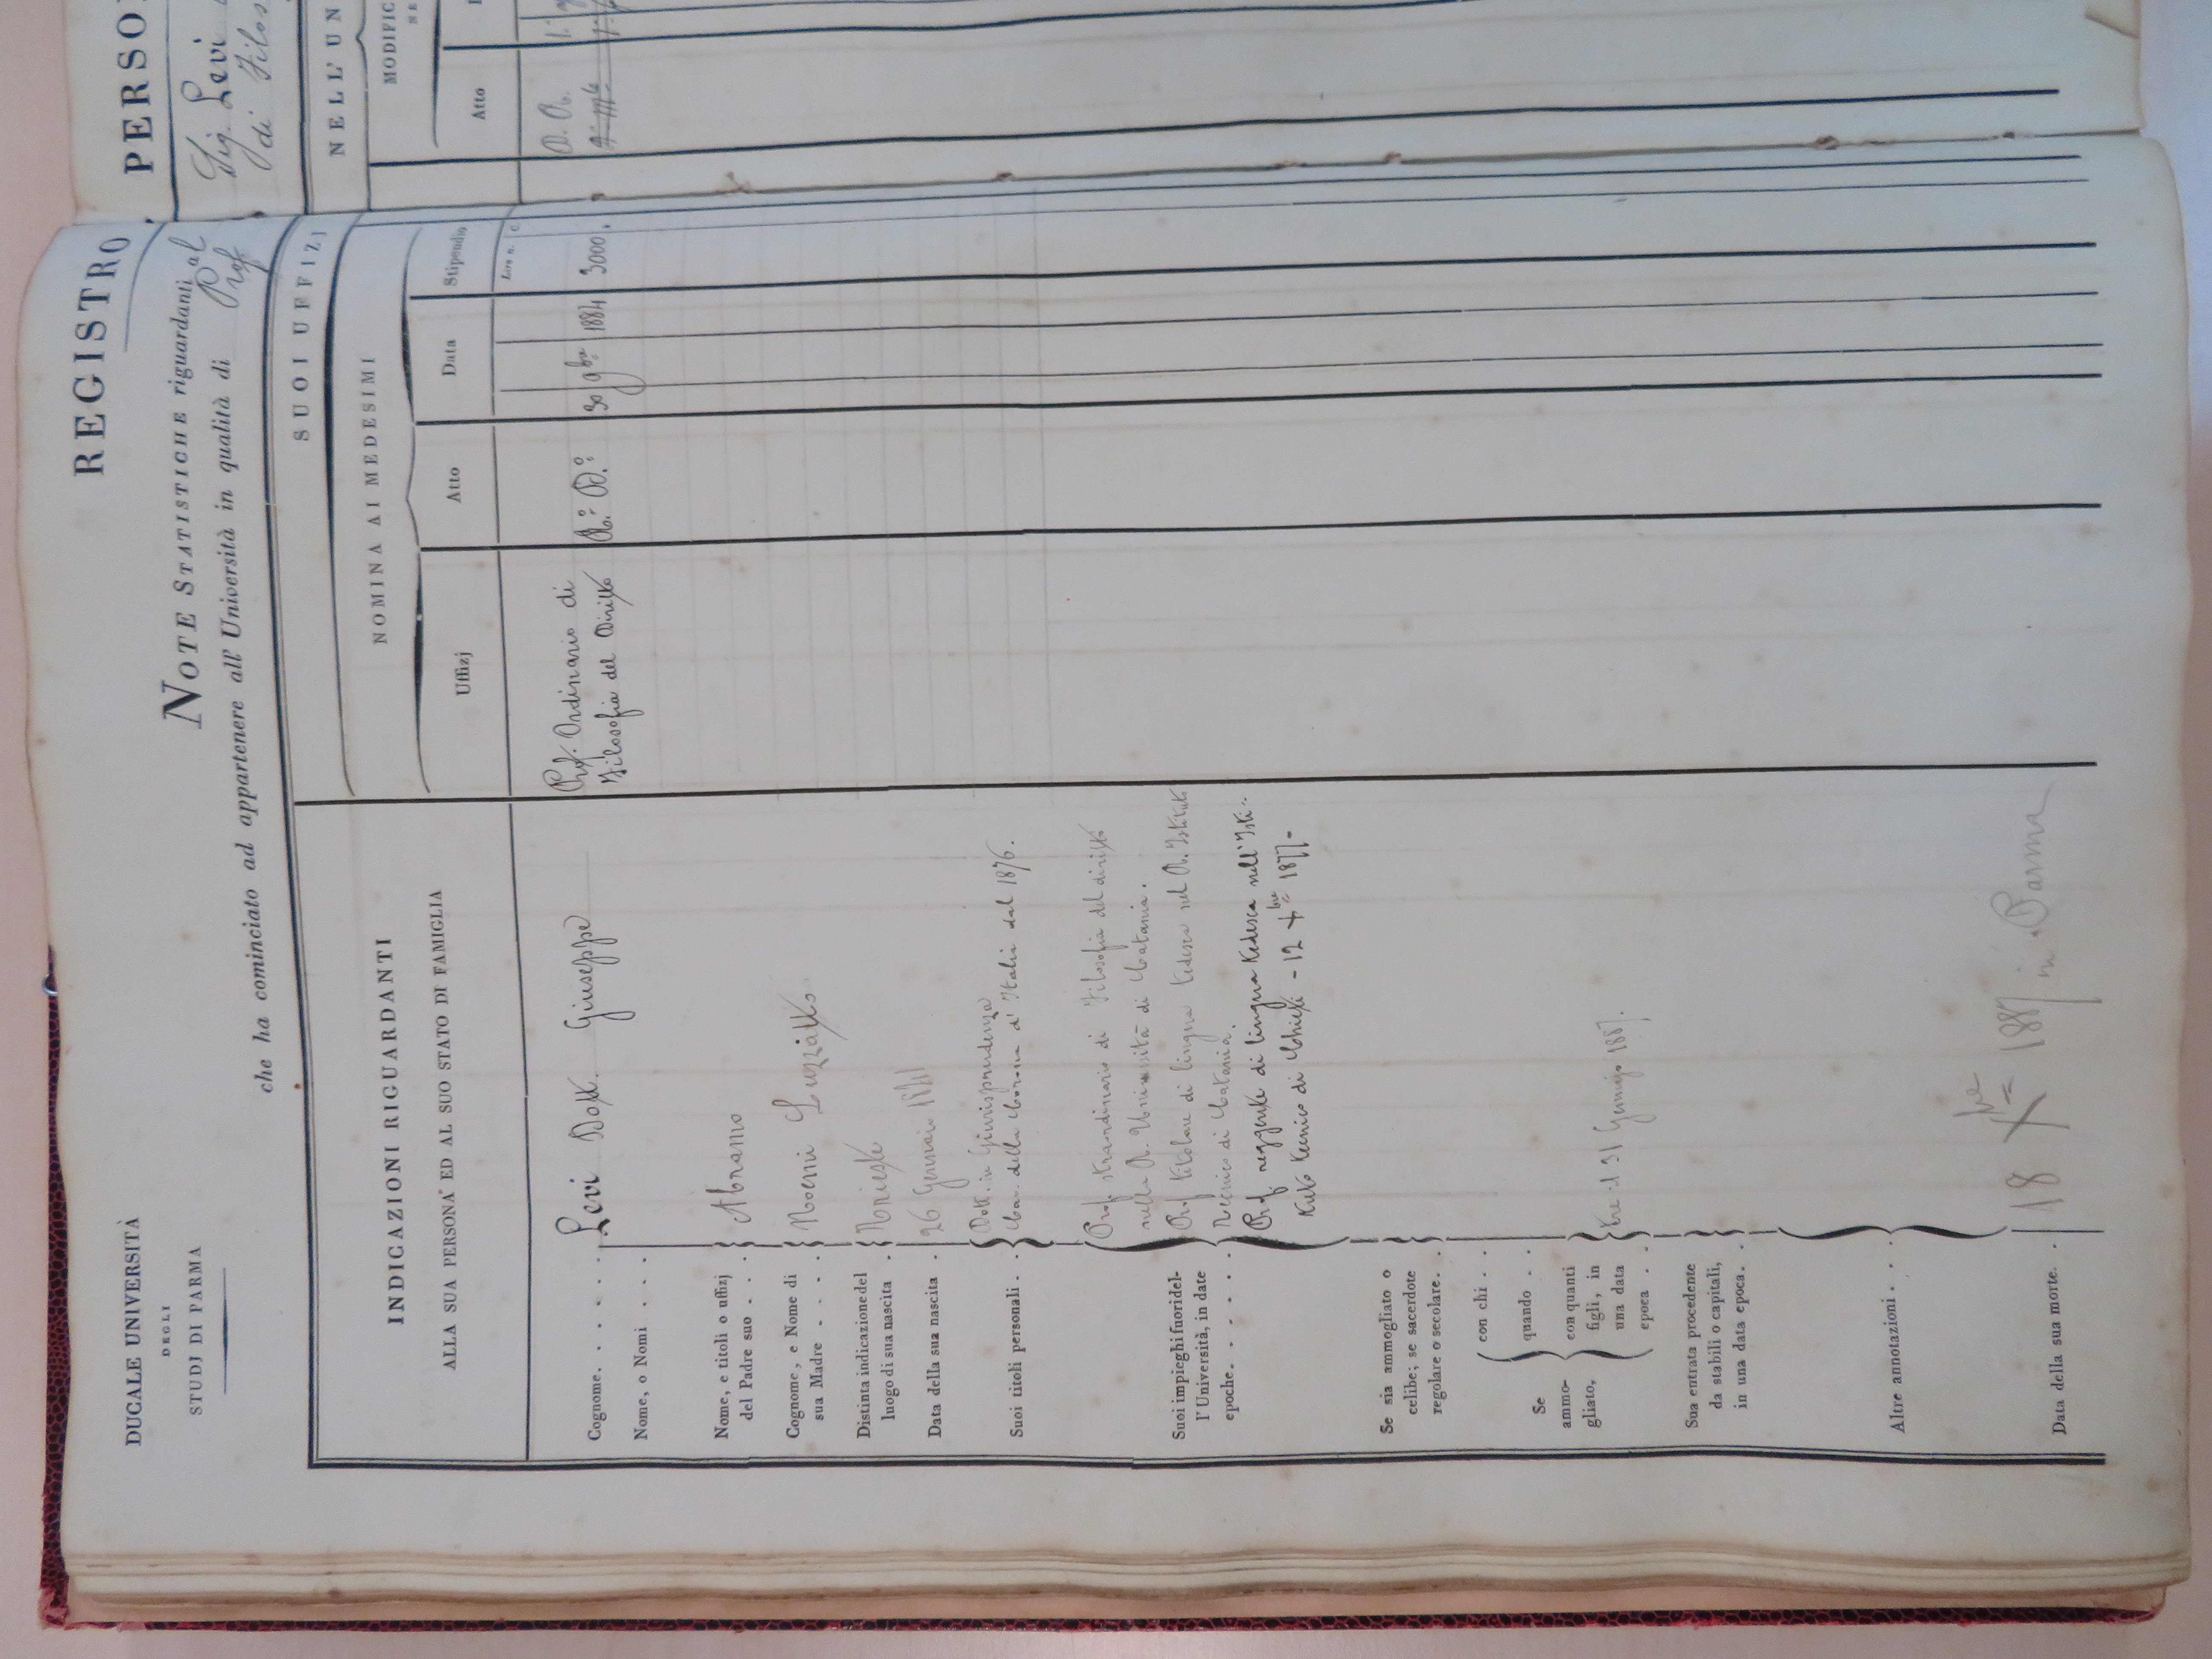 DUCALE UNIVERSITÀ
DEGLI
STUDJ DI PARMA
REGISTRO
PERSO
NOTE STATISTICHE riguardanti al
Sig. Levi
che ha cominciato ad appartenere all' Università in qualità di Prof
di Filos
INDICAZIONI RIGUARDANTI
ALLA SUA PERSONA ED AL SUO STATO DI FAMIGLIA
SUOI UFFIZJ
NELL' UN
NOMINA AI MEDESIMI
MODIFIC
Uffizj
Atto
Data
Stipendio
Atto
Lire n. C.
Cognome. . . . . . Levi Dott. Giuseppe
Nome, o Nomi . . . .
Prof. Ordinario di
Filosofia del Diritto
R.º D.º
30 9bre 1884
3000
Nome, e titoli o uffizj
del Padre suo . . . Abramo
Cognome, e Nome di
sua Madre . . . . Noemi Luzzatto
Distinta indicazione del
luogo di sua nascita . Trieste
Data della sua nascita . 26 Gennaio
Suoi titoli personali . . Dott. in Giurisprudenza
Cav. della Corona d' Italia dal 1876.
Suoi impieghi fuori del-
l' Università, in date
epoche. . . . . .
Prof. straordinario di Filosofia del diritto
nella R. Università di Catania.
Prof. titolare di lingua tedesca nel R. Istituto
Tecnico di Catania.
Prof. reggente di lingua tedesca nell' Isti-
tuto tecnico di Chieti - 12 Xbre 1877-
Se sia ammogliato o
celibe; se sacerdote
regolare o secolare. .
Se
ammo-
gliato,
con chi . .
quando . .
con quanti
figli, in
una data
epoca . . tre il 31 1887.
Sua entrata procedente
da stabili o capitali,
in una data epoca. .
Altre annotazioni . . .
Data della sua morte. . 18 Xbre 1887 in Parma